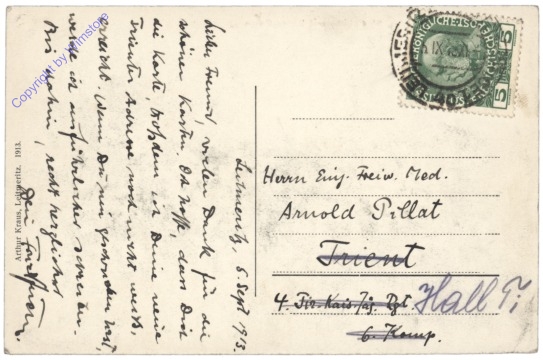 Leitmeritz, 6. Sept 1913.
Lieber Freund, vielen Dank für die
schöne Karte. Ich hoffe, dass Dich
die Karte, trotzdem ich Deine neue
Trienter Adresse noch nicht weiss,
erreicht. Wenn Du mir geschrieben hast,
werde ich ausführlicher schreiben.
Bis dahin, recht herzlichst
Dein
Herrn Einj. Freiw. Med.
Arnold Pillat
Trient
4. Tir. Kais. Jäg. Rgt
6. Komp.
Hall Ti
Arthur Kraus, Leitmeritz. 1913.
5
5
Copyright by Ansichtskarten